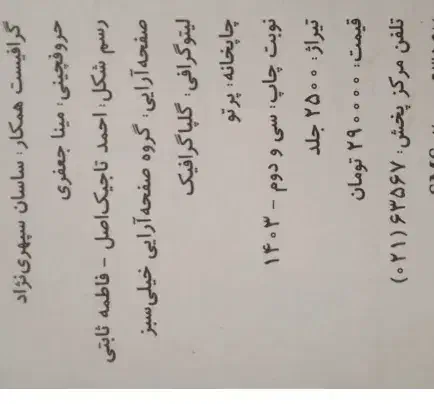 گرافیست همکار: ساسان سپهری‌نژاد
حروفچینی: مینا جعفری
رسم شکل: احمد تاجیک‌اصل - فاطمه ثابتی
صفحه‌آرایی: گروه صفحه‌آرایی خیلی‌سبز
لیتوگرافی: گلپاگرافیک
چاپخانه: پرتو
نوبت چاپ: سی و دوم - ۱۴۰۳
تیراژ: ۲۵۰۰ جلد
قیمت: ۲۹۰۰۰۰ تومان
تلفن مرکز پخش: ۶۳۵۶۷ (۰۲۱)